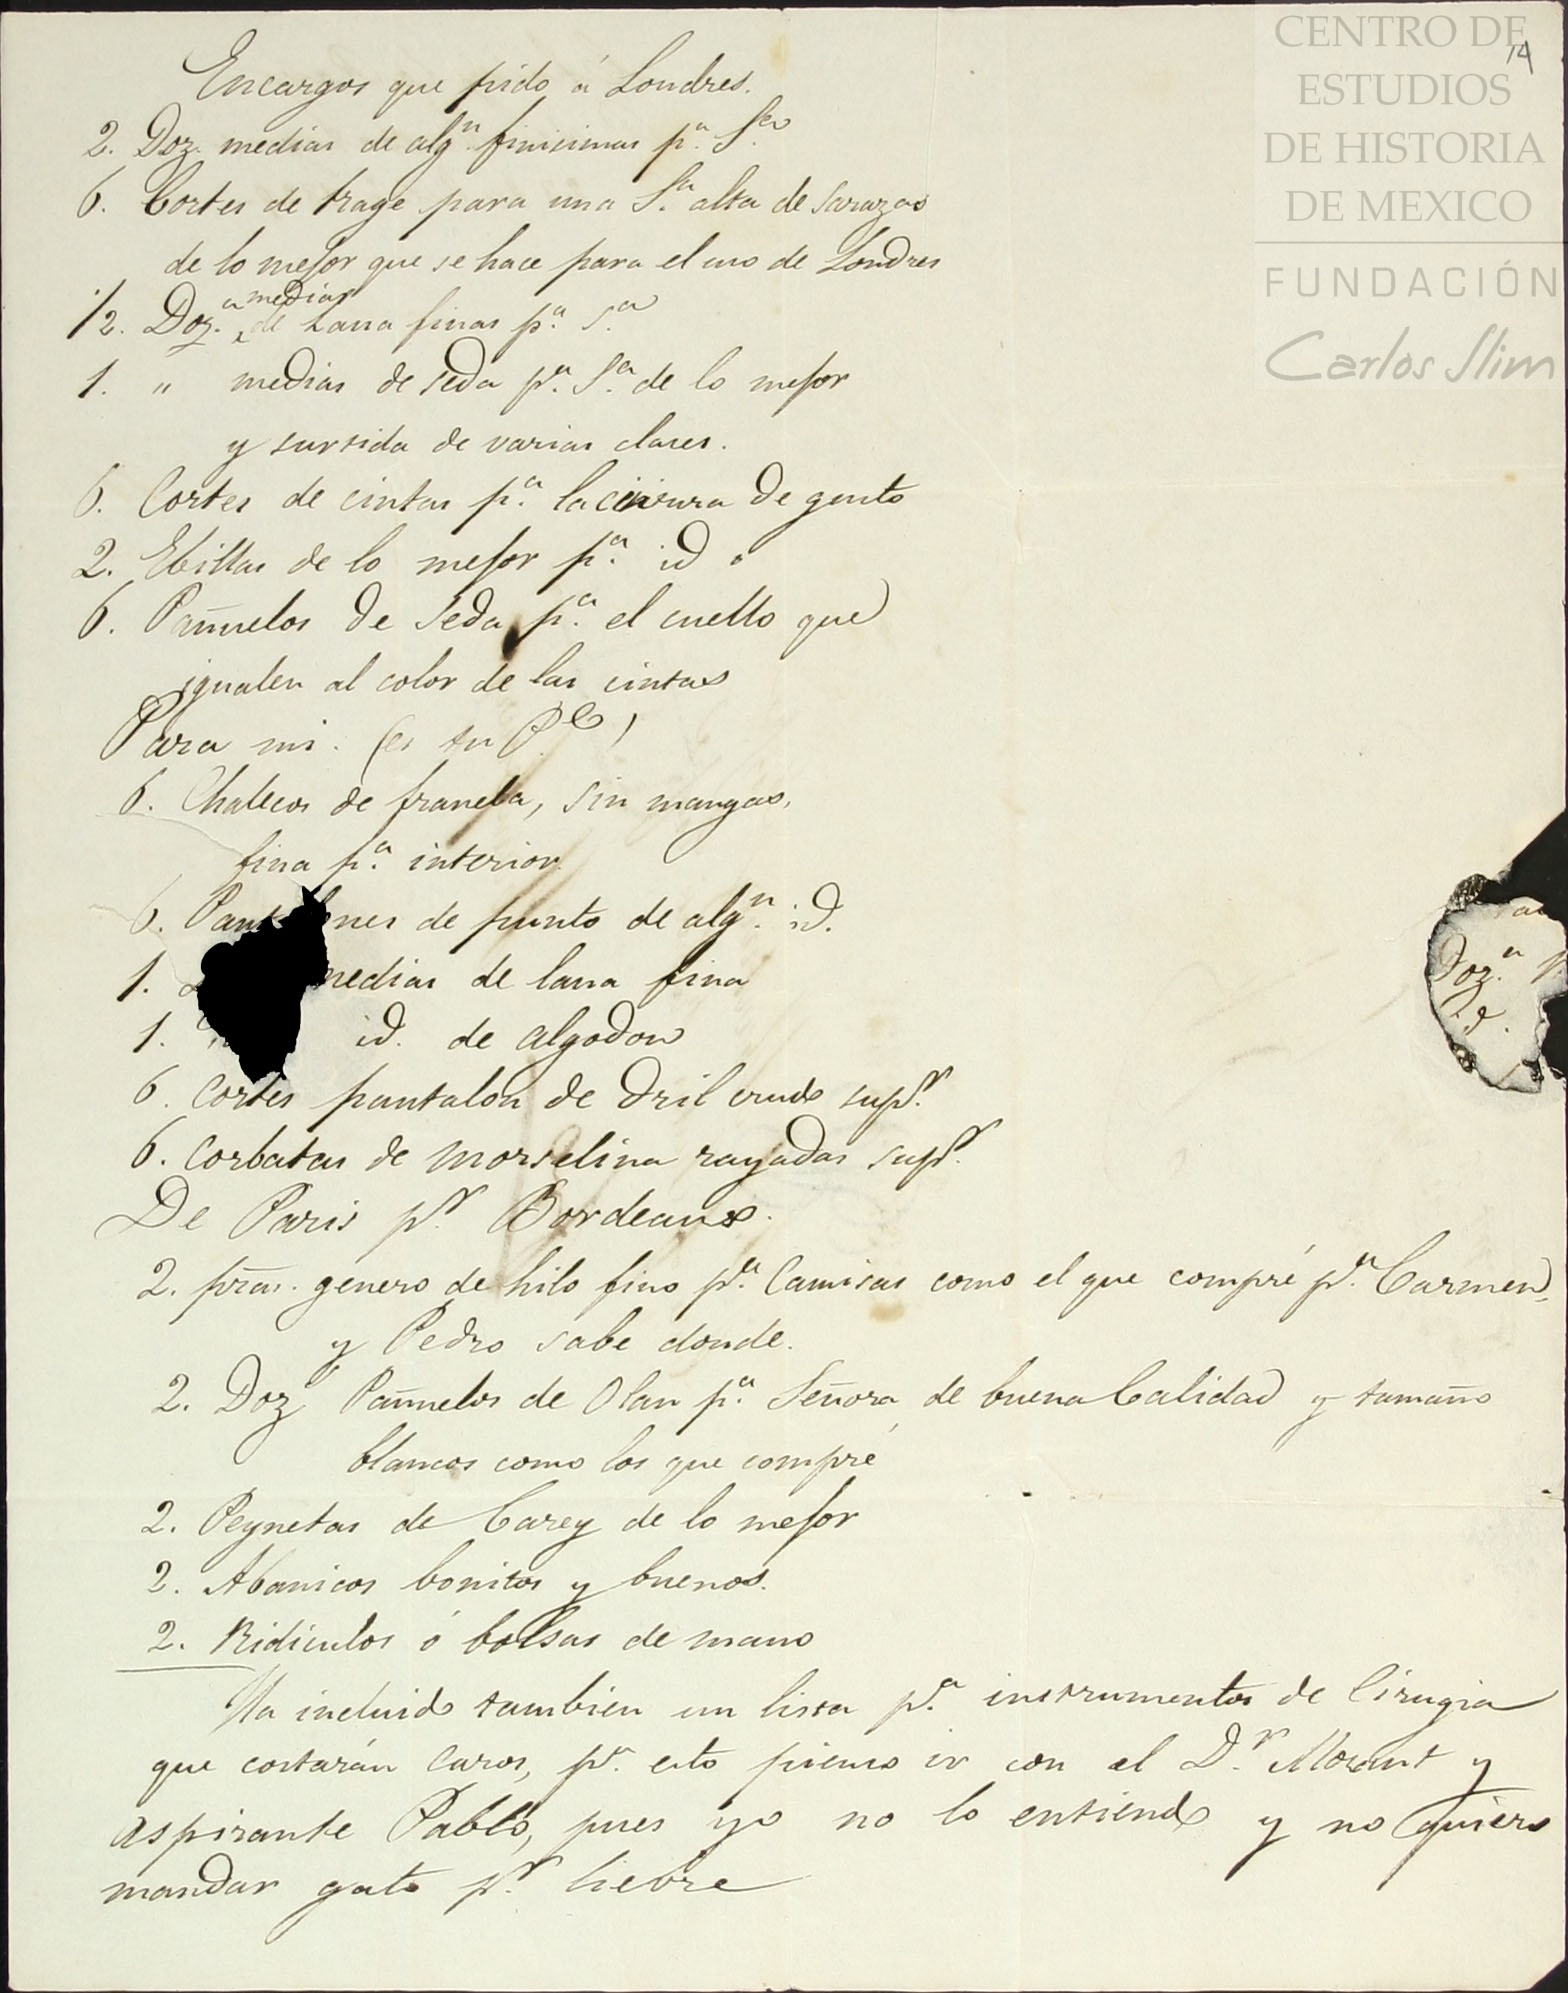 CENTRO DE
ESTUDIOS
DE HISTORIA
DE MEXICO
FUNDACIÓN
Carlos Slim
14
Encargos que pido á Londres.
2. Doz. medias de algn. finisimas pa. Sra
6. Cortes de trage para una Sa. alta de Sarazas
de lo mejor que se hace para el uso de Londres
1/2. Doz.a medias de Lana finas pa. Sa
1. " medias de seda pa. Sa. de lo mejor
y surtida de varias clases.
6. Cortes de cintas pa. la cintura de gusto
2. Ebillas de lo mejor pa. id.
6. Pañuelos de Seda pa. el cuello que
igualen al color de las cintas
Para mi. (es tu Pe)
6. Chalecos de franela, sin mangas,
fina pa. interior
6. Pantalones de punto de algn. id.
1. medias de lana fina
1. id. de algodon
6. Cortes pantalon de Dril crudo supr.
6. Corbatas de morselina rayadas supr.
De Paris pr. Bordeaux.
2. pzas. genero de hilo fino pa. Camisas como el que compré pa. Carmen,
y Pedro sabe donde.
2. Doz Pañuelos de Olan pa. Señora de buena Calidad y tamaño
blancos como los que compré
2. Peynetas de Carey de lo mejor
2. Abanicos bonitos y buenos.
2. Ridiculos ó bolsas de mano
Ha incluido tambien un lista pa. instrumentos de Cirugia
que costarán Caros, pr. esto pienso ir con el Dr. Morant y
aspirante Pablo, pues yo no lo entiendo y no quiero
mandar gato pr. liebre
Doz.a
id.